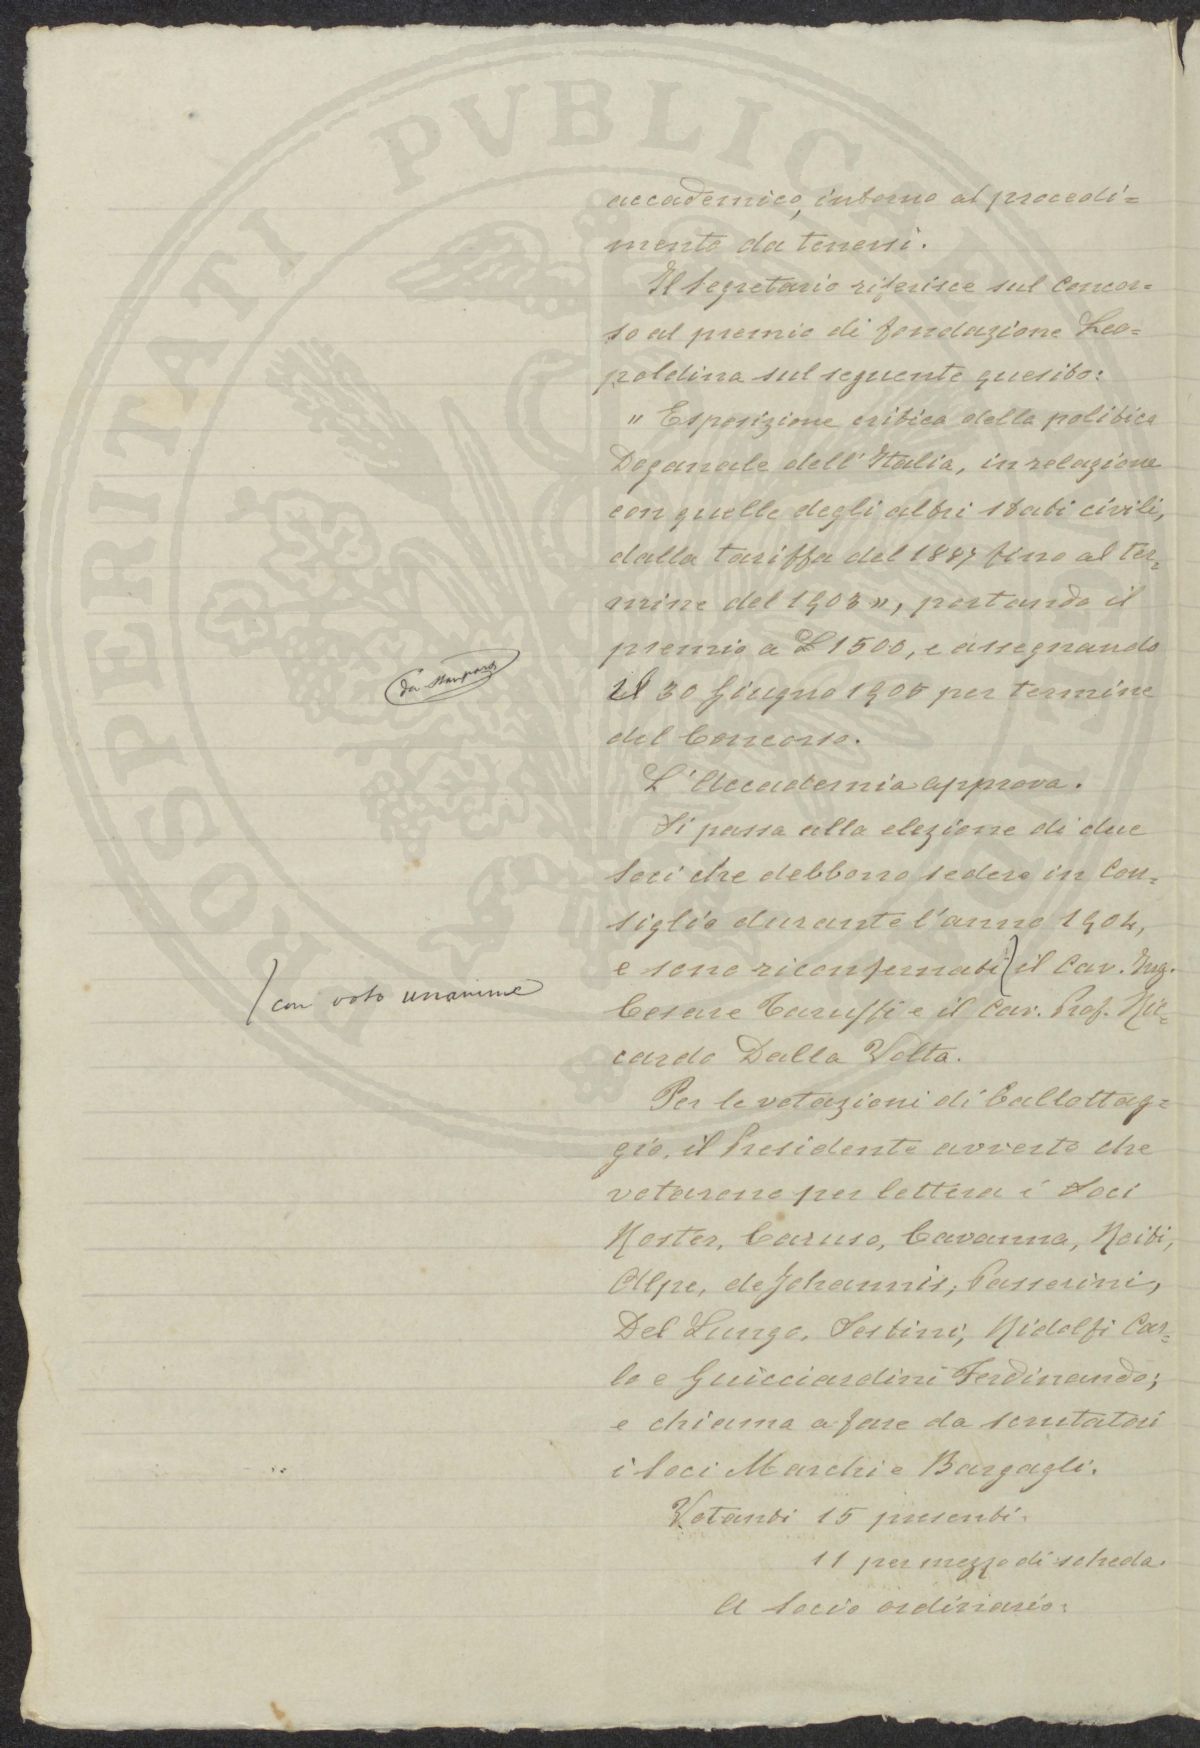 PROSPERITATI PVBLICAE
accademico, intorno al procedi=
mento da tenersi.
Il Segretario riferisce sul Concor=
so al premio di fondazione Leo=
poldina sul seguente quesito:
" Esposizione critica della politica
Doganale dell'Italia, in relazione
con quelle degli altri stati civili,
dalla tariffa del 1887 fino al ter=
mine del 1903 ", portando il
premio a L 1500, e assegnando
da stampare
il 30 Giugno 1905 per termine
del Concorso.
L'Accademia approva.
Si passa alla elezione di due
Soci che debbono sedere in Con=
siglio durante l'anno 1904,
e sono riconfermati) il Cav. Ing.
) con voto unanime
Cesare Taruffi e il Cav. Prof. Ric=
cardo Dalla Volta.
Per le votazioni di ballottag=
gio, il Presidente avverte che
votarono per lettera i Soci
Roster, Caruso, Cavanna,
Alpe, de Johannis, Passerini,
Del Lungo, Sestini, Ridolfi Car=
lo e Guicciardini Ferdinando;
e chiama a fare da scrutatori
i Soci Marchi e Bargagli.
Votanti 15 presenti.
11 per mezzo di scheda.
A Socio ordinario: